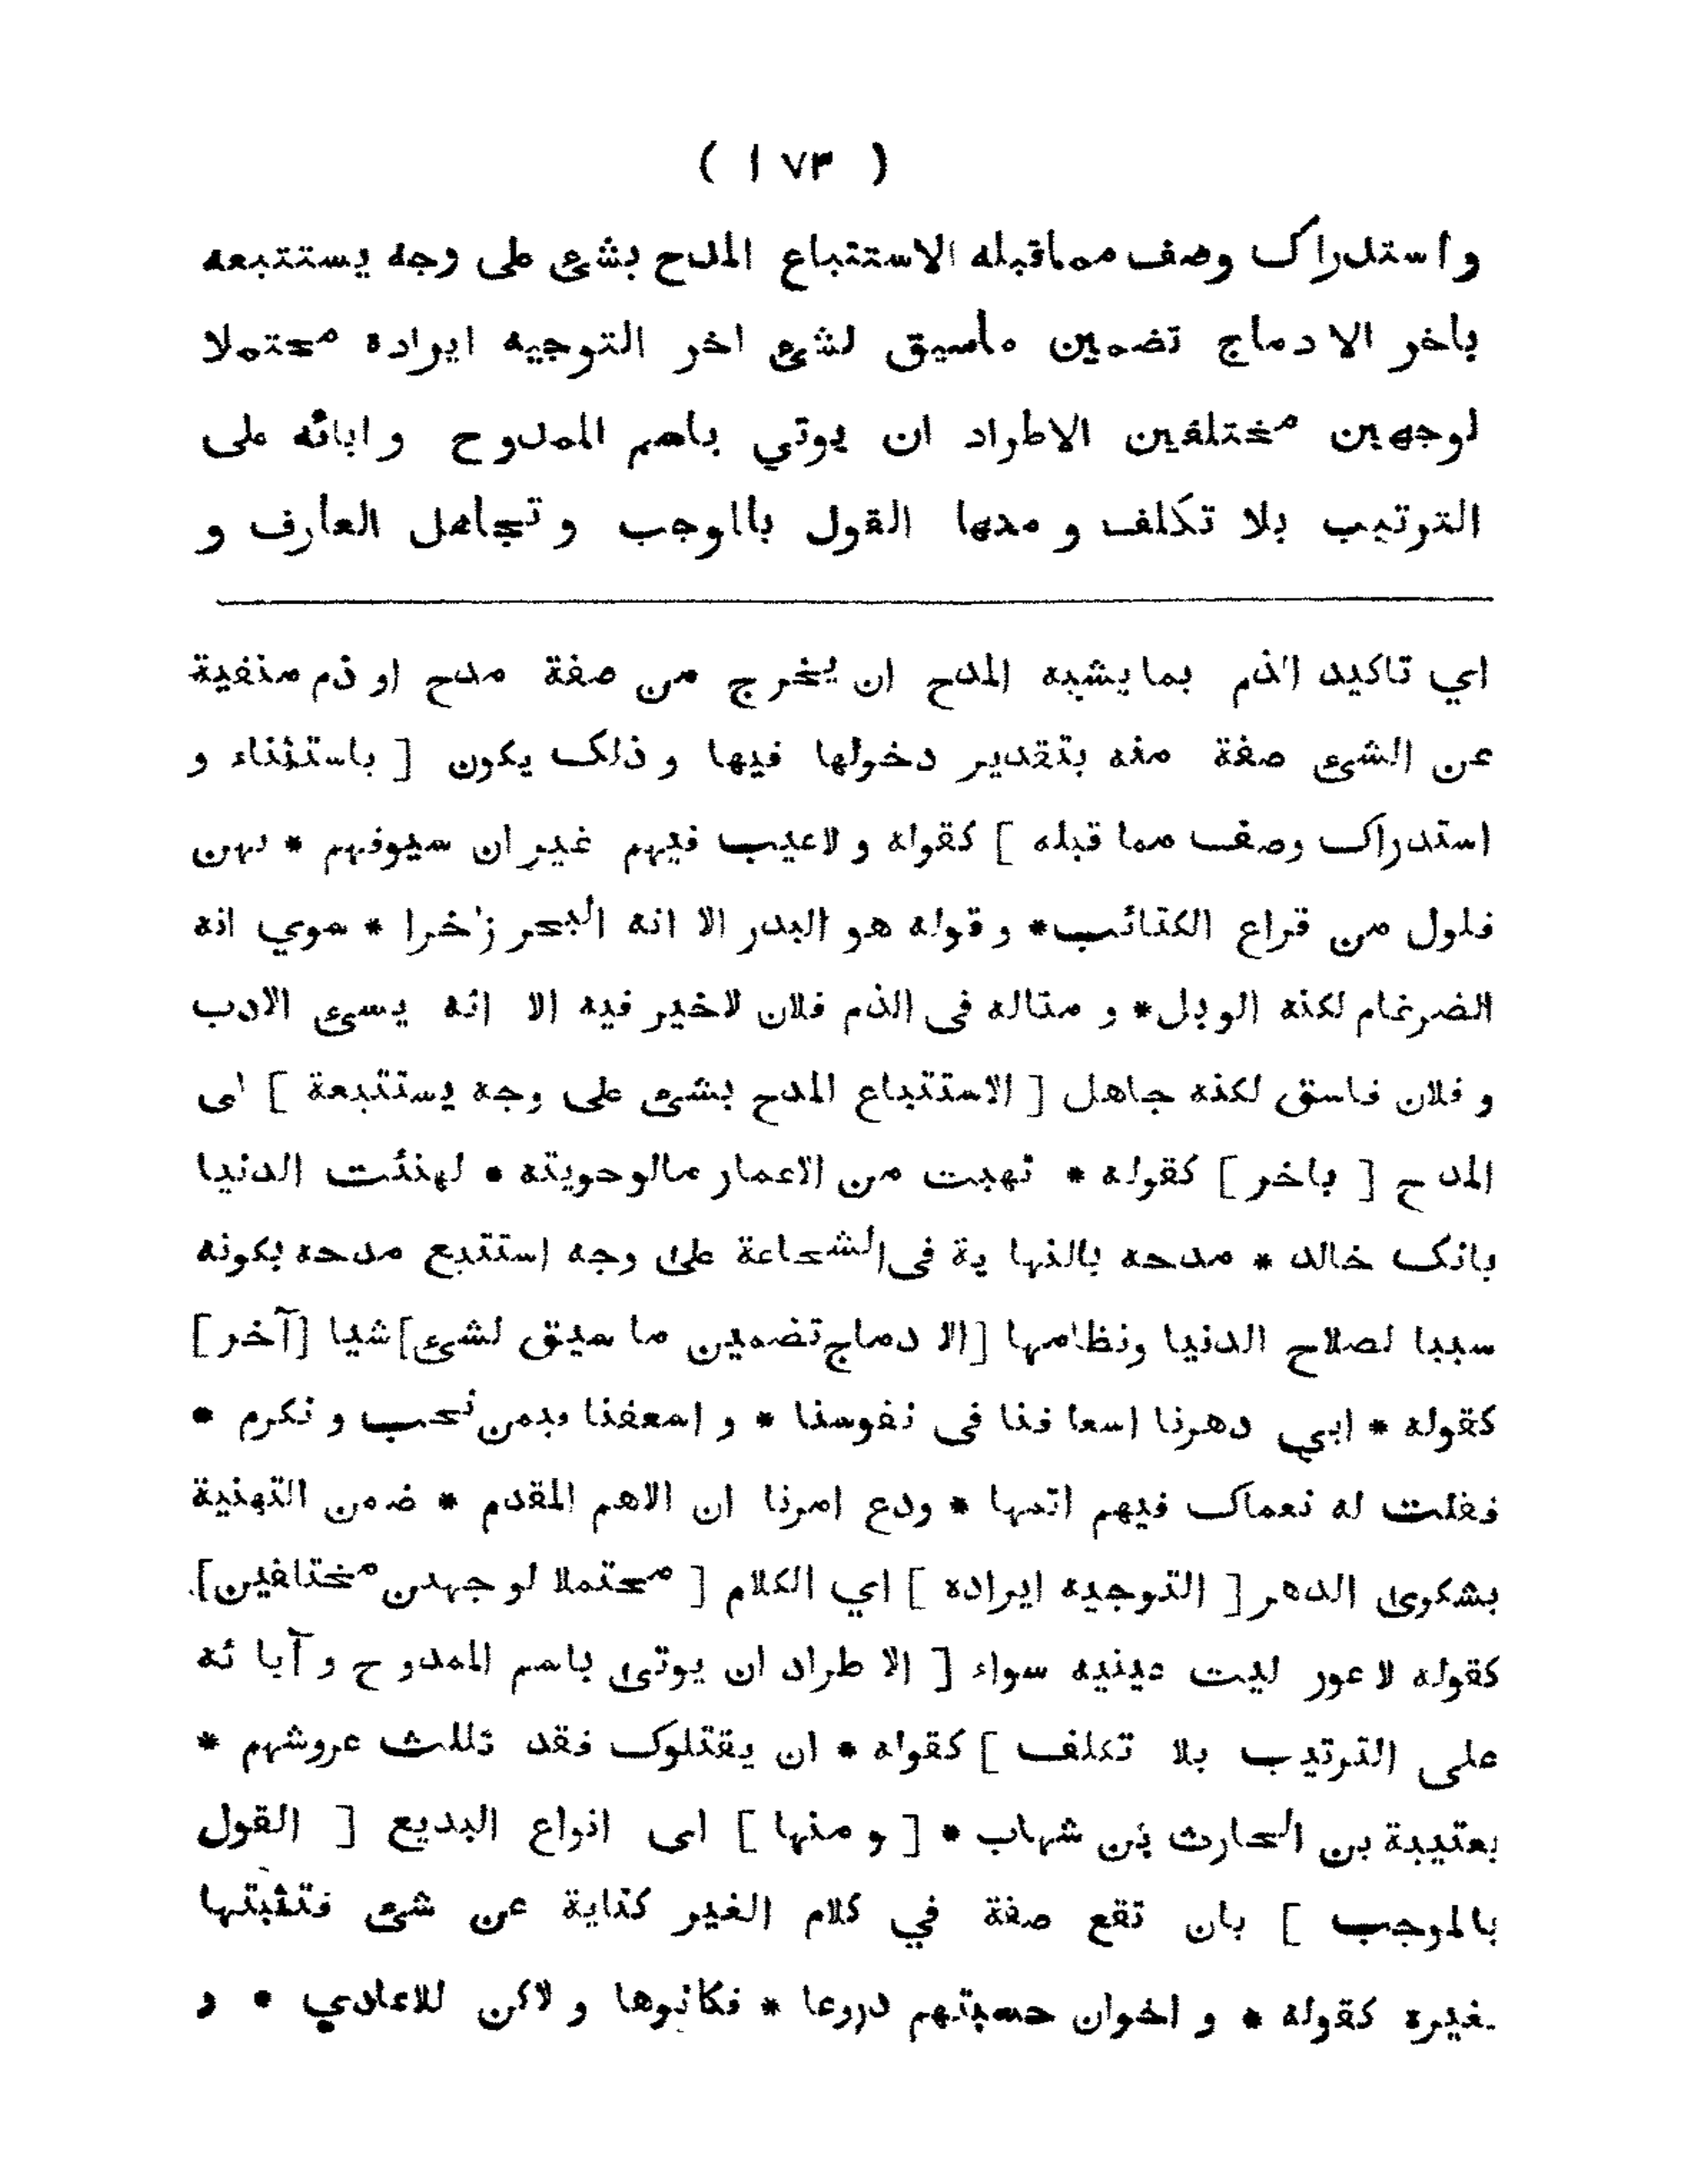 ( ١٧٣ )
واستدراك وصف مماقبله الاستتباع المدح بشئ على وجه يستتبعه
باخر الادماج تضمين ماسيق لشئ اخر التوجيه ايراده محتملا
لوجهين مختلفين الاطراد ان يوتي باسم الممدوح وابائه على
الترتيب بلا تكلف و منها القول بالموجب و تجاهل العارف و
اي تاكيد الذم بمايشبه المدح ان يخرج من صفة مدح او ذم منفية
عن الشئ صفة منه بتقدير دخولها فيها و ذلك يكون [ باستثناء و
استدراك وصف مما قبله ] كقوله و لاعيب فيهم غير ان سيوفهم * بهن
فلول من قراع الكتائب* و قوله هو البدر الا انه البحر زاخرا * سوي انه
الضرغام لكنه الوبل* و مثاله فى الذم فلان لاخير فيه الا انه يسئ الادب
و فلان فاسق لكنه جاهل [ الاستتباع المدح بشئ على وجه يستتبعة ] اى
المدح [ باخر ] كقوله * نهبت من الاعمار مالوحويته * لهنئت الدنيا
بانك خالد * مدحه بالنهاية فى الشجاعة على وجه استتبع مدحه بكونه
سببا لصلاح الدنيا ونظامها [الادماج تضمين ما سيق لشئ]شيا [آخر]
كقوله * ابي دهرنا اسعافنا فى نفوسنا * و اسعفنا بمن نحب و نكرم *
فقلت له نعماك فيهم اتمها * ودع امرنا ان الاهم المقدم * ضمن التهنية
بشكوى الدهر [ التوجيه ايراده ] اي الكلام [ محتملا لوجهين مختلفين]
كقوله لاعور ليت عينيه سواء [ الاطراد ان يوتى باسم الممدوح و آبائه
على الترتيب بلا تكلف ] كقوله * ان يقتلوك فقد ثللت عروشهم *
بعتيبة بن الحارث بن شهاب * [ و منها ] اى انواع البديع [ القول
بالموجب ] بان تقع صفة في كلام الغير كناية عن شئ فتثبتها
لغيره كقوله * و اخوان حسبتهم دروعا * فكانوها و لاكن للاعادي * و